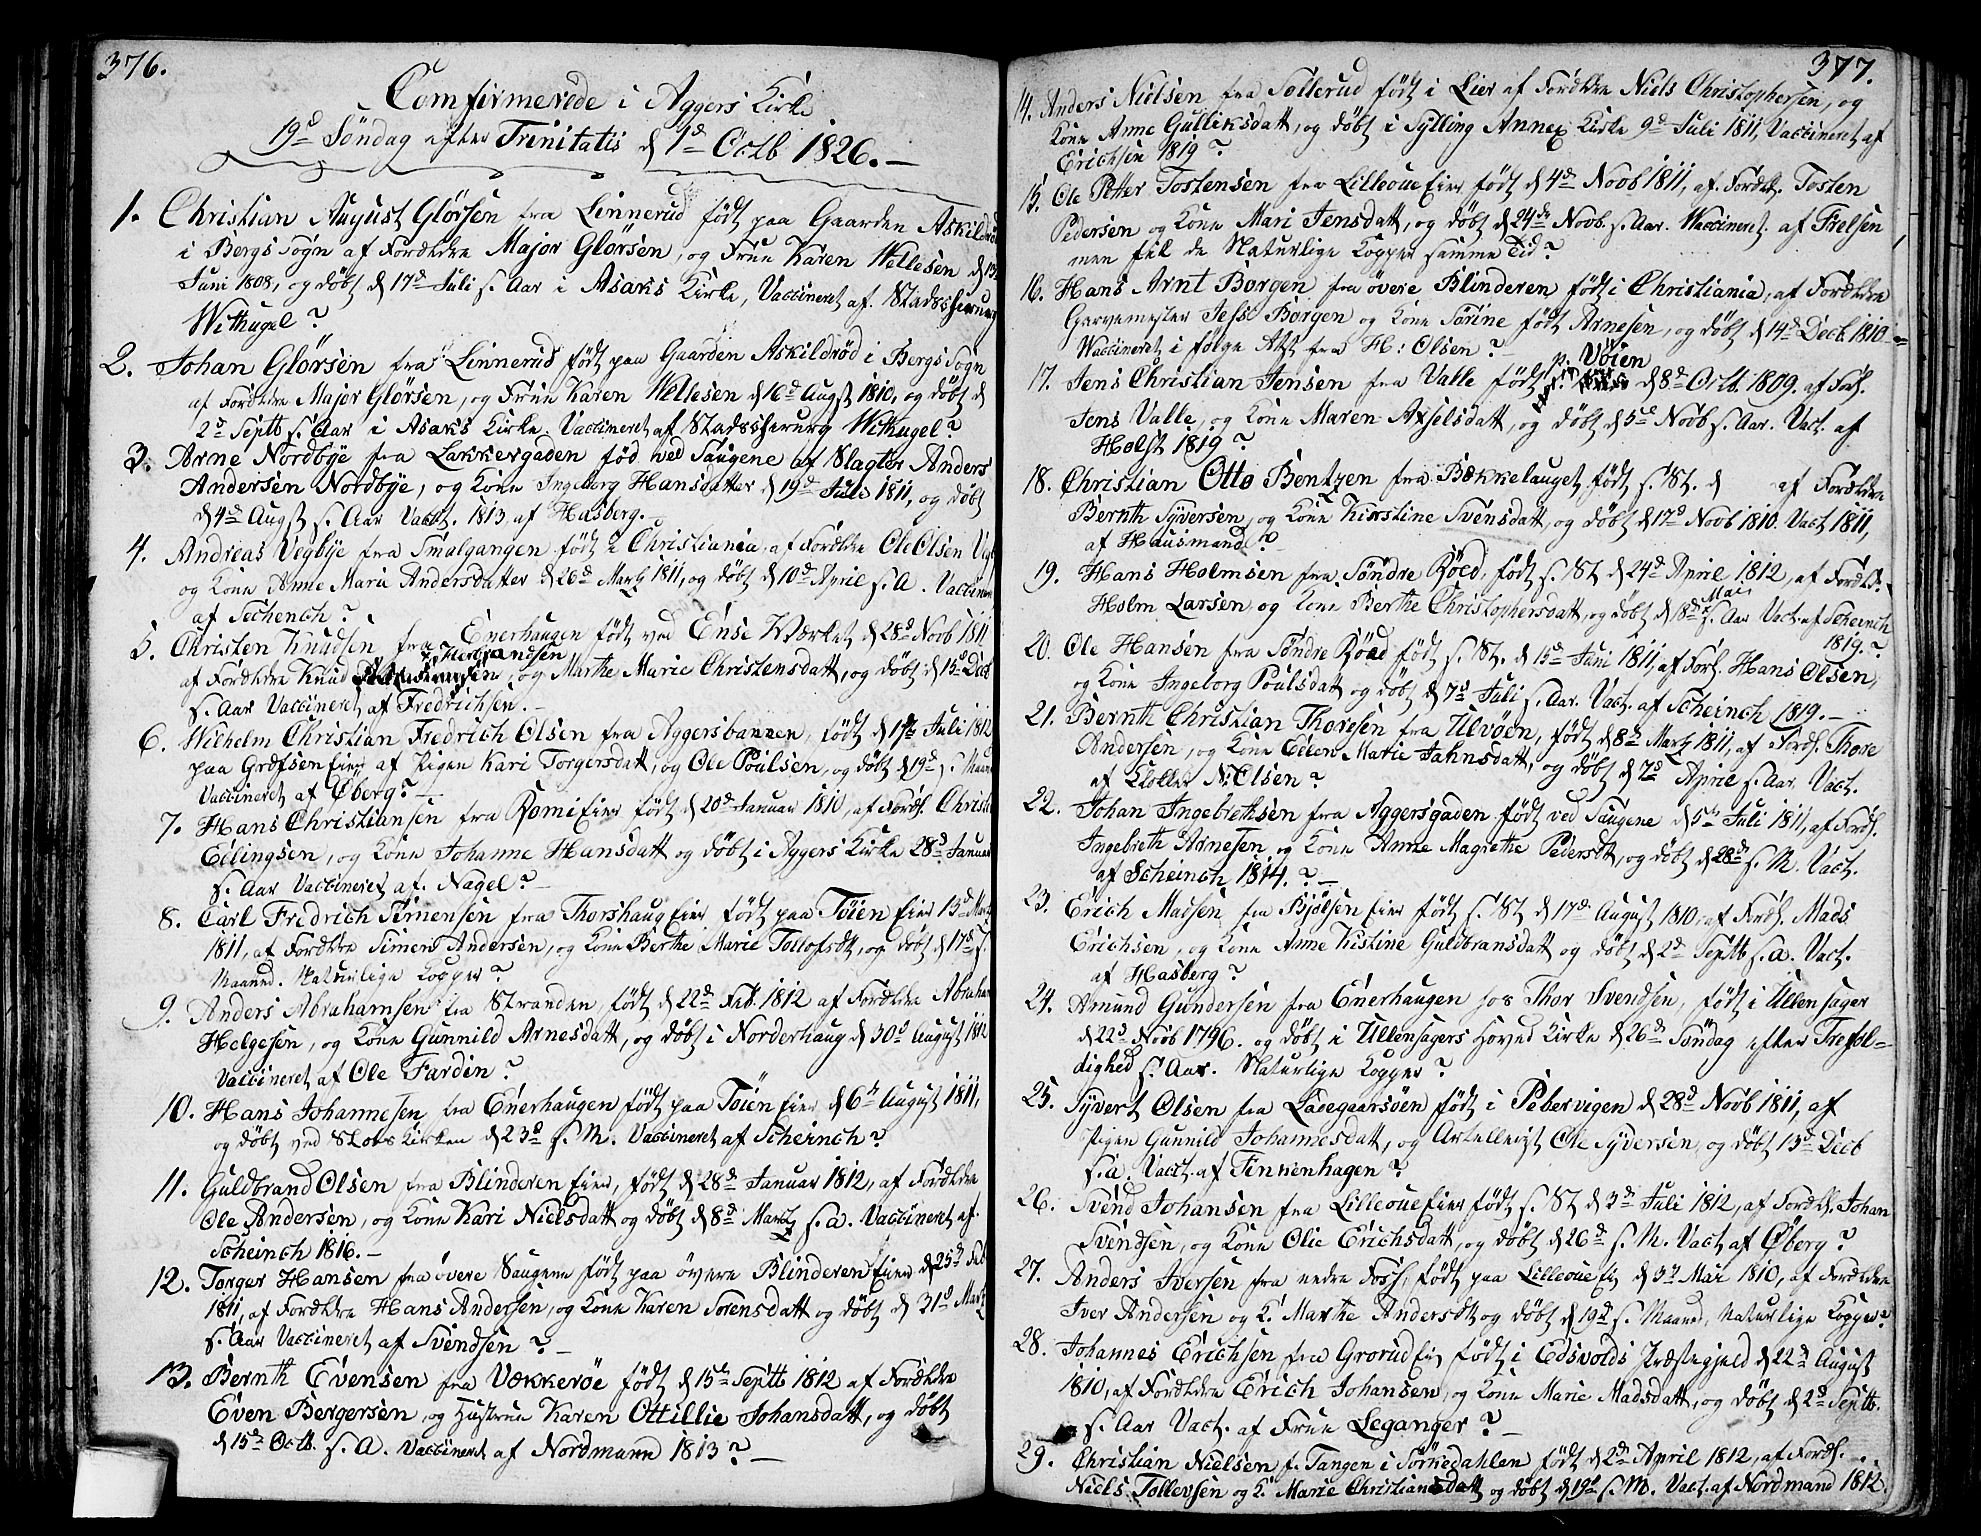 376.
Comfirmerede i Aggers Kirke
19d Søndag efter Trinitatis d 1d Octb 1826.
1. Christian August Glørsen fra Linnerud født paa Gaarden Askildrød
i Bergs Sogn af Forældre Major Glørsen, og Frue Karen Wellesen d 13
Juni 1808, og døbt d 17d Juli s. Aar i Asaks Kirke, Vaccineret af Stadschirurg
Withugel?
2. Johan Glørsen fra Linnerud født paa Gaarden Askildrød i Bergs Sogn
af Forældre Major Glørsen, og Frue Karen Wellesen d 16d Augst 1810, og døbt d
2d Septb s. Aar i Asaks Kirke. Vaccineret af Stadschirurg Withugel?
3. Arne Nordbye fra Lakkergaden fød ved Saugene af Slagter Anders
Andersen Nordbye, og Kone Ingeborg Hansdatter d 19d Juli 1811, og døbt
d 4d Augst s. Aar Vacct. 1813 af Hasberg.
4. Andreas Vegbye fra Smalgangen født i Christiania, af Forældre Ole Olsen
og Kone Anne Maria Andersdatter d 26d Marts 1811, og døbt d 10d April s. A. Vaccineret
af Schench?
5. Christen Knudsen fra Enerhaugen født ved Ense Værket d 28d Novb 1811
af Forældre Knud Herbrandsen, og Marthe Marie Christensdatt, og døbt d 15d Decb
s. Aar Vaccineret af Fredrichsen.
6. Wilhelm Christian Fredrich Olsen fra Aggersbannen, født d 17d Juli 1812
paa Græfsen Eier af Pigen Kari Torgersdatt, og Ole Poulsen, og døbt d 19d s. Maan
Vaccineret af Øberg?
7. Hans Christiansen fra Romi Eier født d 20d Januar 1810, af Foræl. Christe
Eilingsen, og Kone Johanne Hansdatt og døbt i Aggers Kirke 28d Januar
s. Aar Vaccineret af. Nagel?
8. Carl Fredrich Simensen fra Thorshaug Eier født paa Tøien Eier 15d Marts
1811, af Forældre Simen Andersen, og Kone Berthe Marie Tollofsdt, og døbt d 17d s.
Maaned. Naturlige Kopper?
9. Anders Abrahamsen fra Stranden, født d 22d Feb. 1812 af Forældre Abraham
Helgesen, og Kone Gunnild Arnesdatt, og døbt i Norderhaug d 30d August 1812
Vaccineret af Ole Fardin?
10. Hans Johannesen fra Enerhaugen født paa Tøien Eier d 6d August 1811,
og døbt ved Slots Kirken d 23d s. M. Vaccineret af Scheinch?
11. Guldbrand Olsen fra Blinderen Eier, født d 28d Januar 1812, af Forældre
Ole Andersen, og Kone Kari Nielsdatt og døbt d 8d Marts s. a. Vaccineret af
Scheinch 1816.
12. Torger Hansen fra øvere Saugene født paa øvere Blinderen Eier d 25d Feb
1811, af Forældre Hans Andersen, og Kone Karen Sorensdatt og døbt d 31d Marts
s. Aar Vaccineret af Svendsen?
13. Bernth Evensen fra Vækkerøe født d 15d Septb 1812 af Forældre
Even Bergersen, og Hustrue Karen Ottillie Johansdatt, og døbt
d 15d Octb. s. A. Vaccineret af Nordmann 1813?
377.
14. Anders Nielsen fra Sollerud født i Lier af Forældre Niels Christophersen, og
Kone Anne Gulliksdatt, og døbt i Sylling Annex Kirke 9d Juli 1811, Vaccineret af
Erichsen 1819?
15. Ole Petter Tostensen fra Lilleoue Eier født d 4d Novb 1811, af Foræl. Tosten
Pedersen og Kone Mari Jensdatt, og døbt d 24de Novb. s. Aar. Vaccineret af Frelsen
men fik de Naturlige Kopper samme Tid?
16. Hans Arnt Borgen fra øvere Blinderen født i Christiania, af Forældre
Garvemester Jesse Borgen og Kone Sorine født Arnesen, og døbt d 14d Decb. 1810
Vaccineret i følge Atst fra H: Olsen?
17. Jens Christian Jensen fra Valle født p. Vøien d 8d Octb. 1809. af Foræl.
Jens Valle, og Kone Maren Axselsdatt, og døbt d 5d Novb s. Aar. Vact. af
Holst 1819?
18. Christian Otto Bentzen fra Bækkelauget født s. St. d af Forældre
Bernth Syversen, og Kone Kirstine Svensdatt, og døbt d 17d Novb 1810. Vact 1811,
af Hausmand?
19. Hans Holmsen fra Søndre Røed, født s. St d 24d April 1812, af Foræl.
Holm Larsen, og Kone Berthe Christophersdatt, og døbt d 18d Mai s. Aar Vact. af Scheinch
1819.?
20. Ole Hansen fra Søndre Røed født s. St. d 15d Juni 1811, af Foræl. Hans Olsen,
og Kone Ingeborg Poulsdatt og døbt d 7d Juli s. Aar. Vact. af Scheinch 1819.
21. Bernth Christian Thoresen fra Ulvøen, født d 8d Marts 1811, af Foræl. Thore
Andersen, og Kone Ellen Marie Jahnsdatt, og døbt d 7d April s. Aar. Vact.
af Klokker N: Olsen?
22. Johan Ingebrethsen fra Aggersgaden født ved Saugene d 5d Juli 1811, af Foræl.
Ingebreth Arnesen og Kone Anne Magrethe Pedersdt, og døbt d 28d s. M. Vact.
af Scheinch 1814.?
23. Erich Madsen fra Bjølsen Eier født s. St d 17d August 1810, af Foræl. Mads
Erichsen, og Kone Anne Kistine Guldbransdatt og døbt d 2d Septb s. a. Vact.
af Hasberg?
24. Amund Gundersen fra Enerhaugen hos Thor Svendsen, født i Ullensager
d 22d Novb 1796. og døbt i Ullensagers Hoved Kirke d 26d Søndag efter Trefol-
dighed s. Aar. Naturlige Kopper?
25. Syvert Olsen fra Ladegaarsøen født i Pebervigen d 28d Novb 1811, af
Pigen Gunnild Johannesdatt, og Artellerist Ole Syversen, og døbt 15d Decb
s. a. Vact. af Finnenhagen?
26. Svend Johansen fra Lilleoue Eier født s. St d 3d Juli 1812, af Foræl. Johan
Svendsen, og Kone Olie Erichsdatt, og døbt d 26d s. M. Vact. af Øberg?
27. Anders Iversen fra nedre Foss, født paa Lilleoue Ei d 3d Mai 1810, af Forældre
Iver Andersen og K. Marthe Andersdt og døbt d 19d s. Maaned, Naturlige Kopper?
28. Johannes Erichsen fra Grorud Ei født i Edsvolds Præstegjeld d 22d August
1810, af Forældre Erich Johansen, og Kone Marie Madsdatt, og døbt d 2d Septb.
s. Aar Vact. af Frue Leganger?
29. Christian Nielsen f. Tangen i Sørkedahlen født d 2d April 1812, af Foræl.
Niels Tollevsen og K. Marie Christiansdatt og døbt d 19d s. M. Vact. af Nordmand 1812